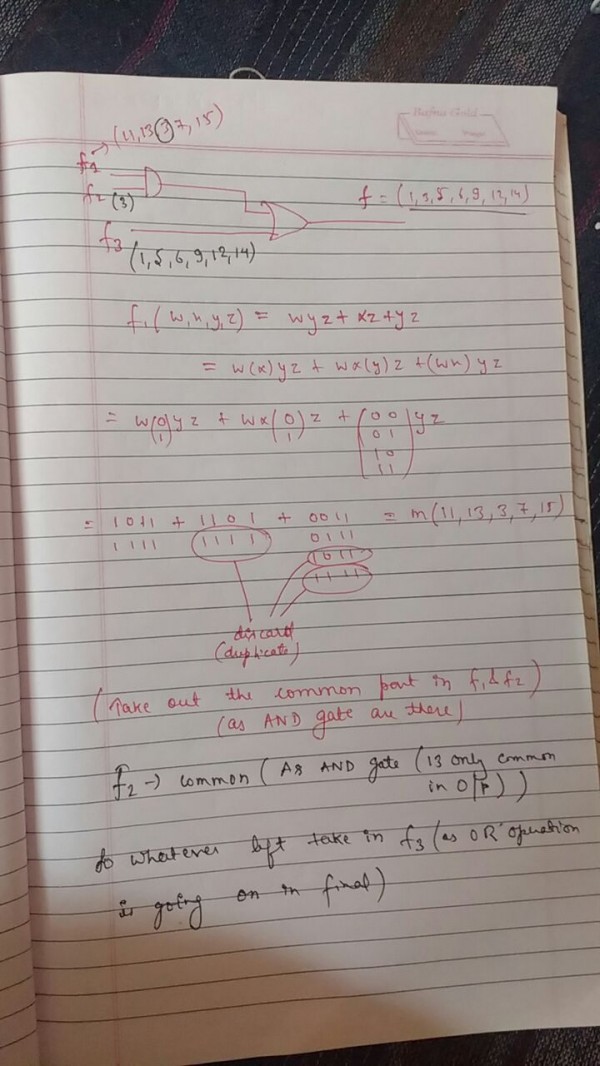 (11, 13, 3, 7, 15)
f1
f2 (3)
f3
(1, 5, 6, 9, 12, 14)
f = (1, 3, 5, 6, 9, 12, 14)
f1 (w, x, y, z) = wyz + xz + yz
= w(x)yz + wx(y)z + (wx) yz
= w(0 1)yz + wx(0 1)z + (00 01 10 11)yz
= 1011 + 1101 + 0011 = m(11, 13, 3, 7, 15)
1111 1111 0111
1011
1111
discard
(duplicate)
(Take out the common part in f1 & f2)
(as AND gate are there)
f2 → common (As AND gate (13 only common
in O/P))
do whatever left take in f3 (as OR operation
is going on in final)